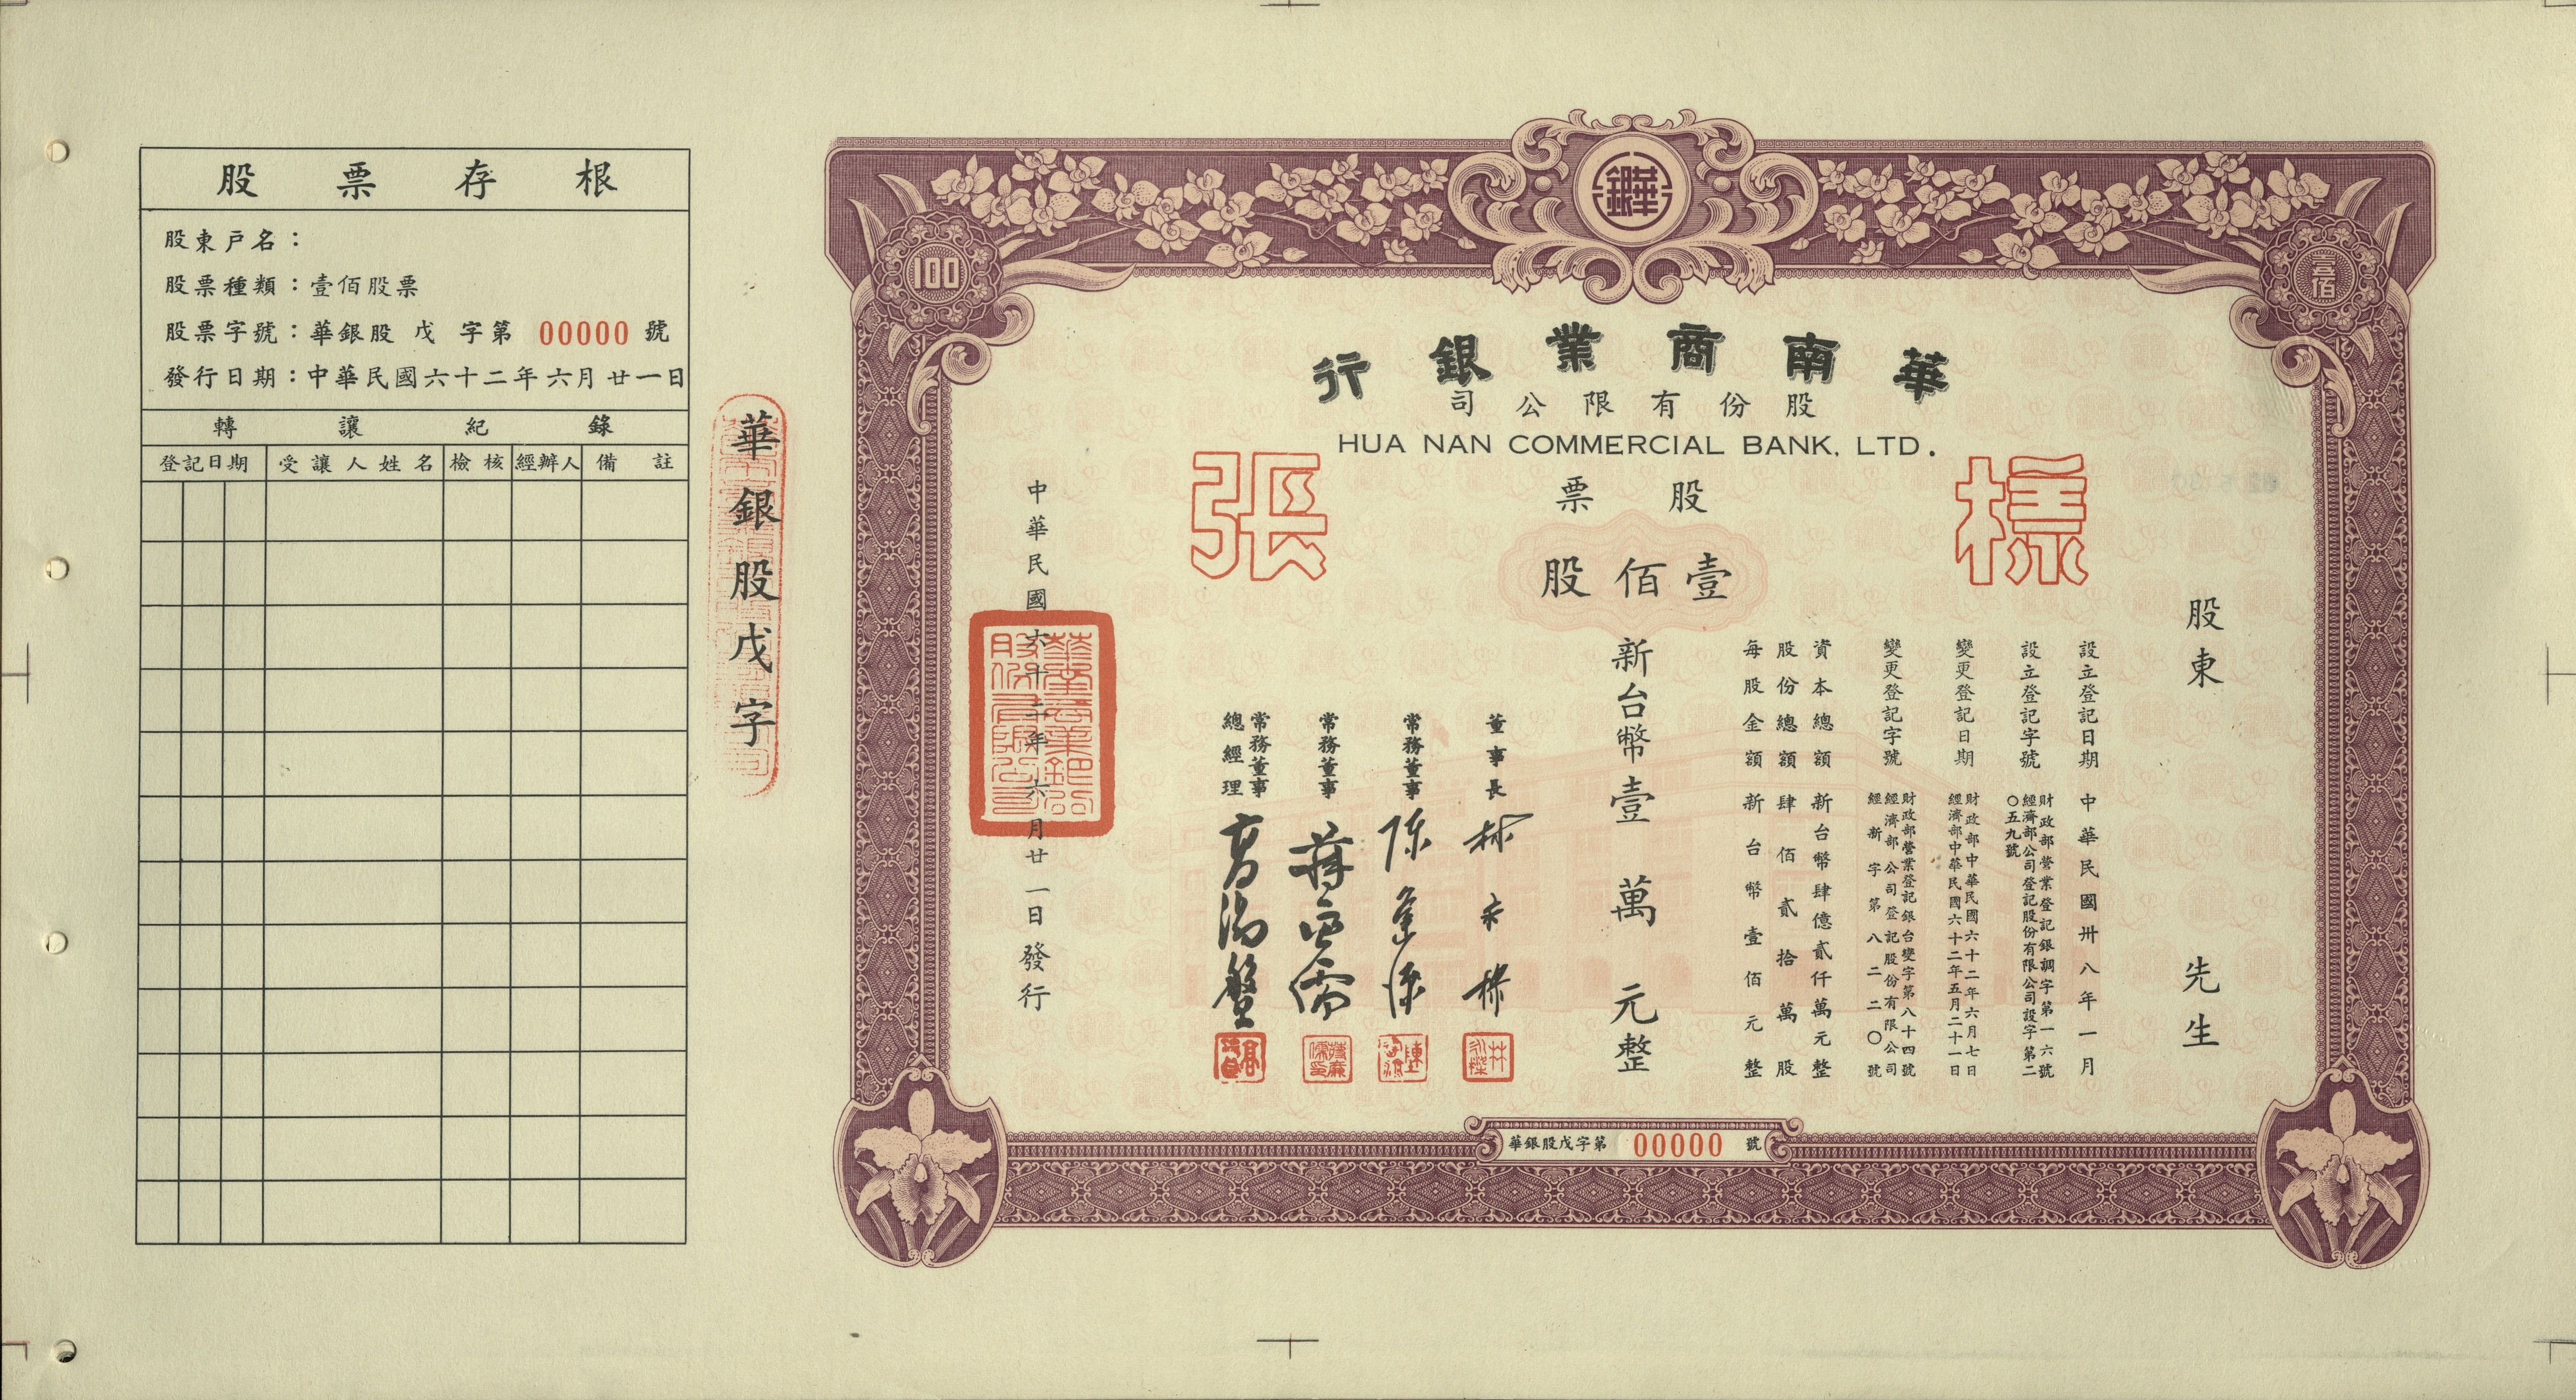 股票存根
股東戶名：
股票種類：壹佰股票
股票字號：華銀股 戊 字第 00000 號
發行日期：中華民國六十二年六月廿一日
轉讓紀錄
登記日期 受讓人姓名 檢核 經辦人 備註
華銀股戊字
華銀
100
壹佰
華南商業銀行
股份有限公司
HUA NAN COMMERCIAL BANK, LTD.
樣張
股票
壹佰股
股東 先生
設立登記日期 中華民國卅八年一月
設立登記字號 財政部營業登記銀調字第一六號
經濟部公司登記股份有限公司設字第二
〇五九號
變更登記日期 財政部中華民國六十二年六月七日
經濟部中華民國六十二年五月二十一日
變更登記字號 財政部營業登記銀台變字第八十四號
經濟部公司登記股份有限公司
經新字第八二二〇號
資本總額 新台幣肆億貳仟萬元整
股份總額 肆佰貳拾萬股
每股金額 新台幣壹佰元整
新台幣壹萬元整
董事長
常務董事
常務董事
常務董事
總經理
中華民國六十二年六月廿一日發行
華銀股戊字第 00000 號